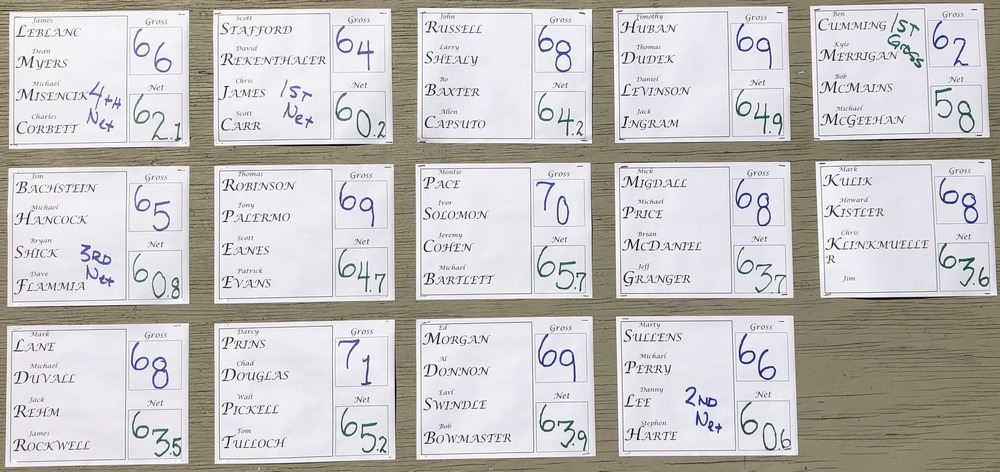 James
LEBLANC
Dean
MYERS
Michael
MISENCIK
Charles
CORBETT
4TH
Net
Gross
66
Net
62.1
Scott
STAFFORD
David
REKENTHALER
Chris
JAMES
Scott
CARR
1ST
Net
Gross
64
Net
60.2
John
RUSSELL
Larry
SHEALY
Bo
BAXTER
Allen
CAPSUTO
Gross
68
Net
64.2
Timothy
HUBAN
Thomas
DUDEK
Daniel
LEVINSON
Jack
INGRAM
Gross
69
Net
64.9
Ben
CUMMING
Kyle
MERRIGAN
Bob
MCMAINS
Michael
MCGEEHAN
1ST
Gross
Gross
62
Net
58
Jim
BACHSTEIN
Michael
HANCOCK
Bryan
SHICK
Dave
FLAMMIA
3RD
Net
Gross
65
Net
60.8
Thomas
ROBINSON
Tony
PALERMO
Scott
EANES
Patrick
EVANS
Gross
69
Net
64.7
Montie
PACE
Ivor
SOLOMON
Jeremy
COHEN
Michael
BARTLETT
Gross
70
Net
65.7
Mick
MIGDALL
Michael
PRICE
Brian
MCDANIEL
Jeff
GRANGER
Gross
68
Net
63.7
Mark
KULIK
Howard
KISTLER
Chris
KLINKMUELLE
R
Jim
Gross
68
Net
63.6
Mark
LANE
Michael
DUVALL
Jack
REHM
James
ROCKWELL
Gross
68
Net
63.5
Darcy
PRINS
Chad
DOUGLAS
Walt
PICKELL
Tom
TULLOCH
Gross
71
Net
65.2
Ed
MORGAN
Al
DONNON
Earl
SWINDLE
Bob
BOWMASTER
Gross
69
Net
63.9
Marty
SULLENS
Michael
PERRY
Danny
LEE
Stephen
HARTE
2ND
Net
Gross
66
Net
60.6